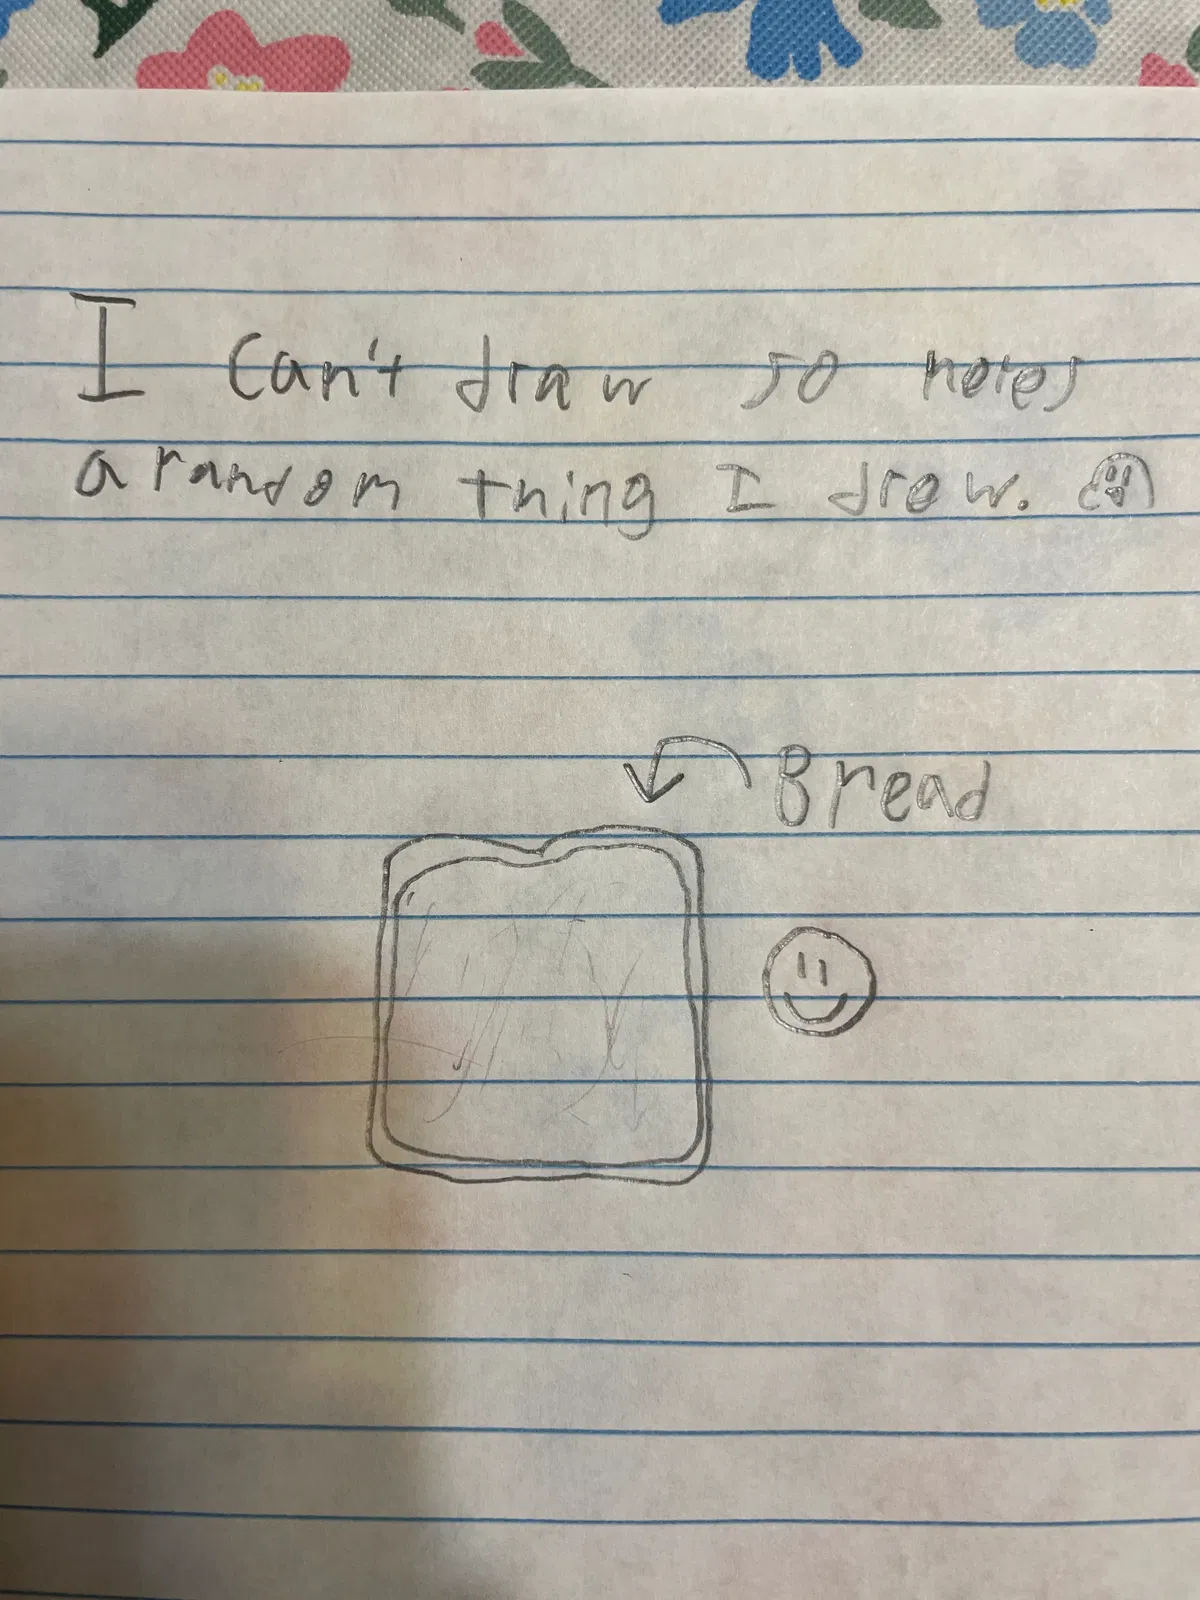 I can't draw so notes
a random thing I drew.
Bread